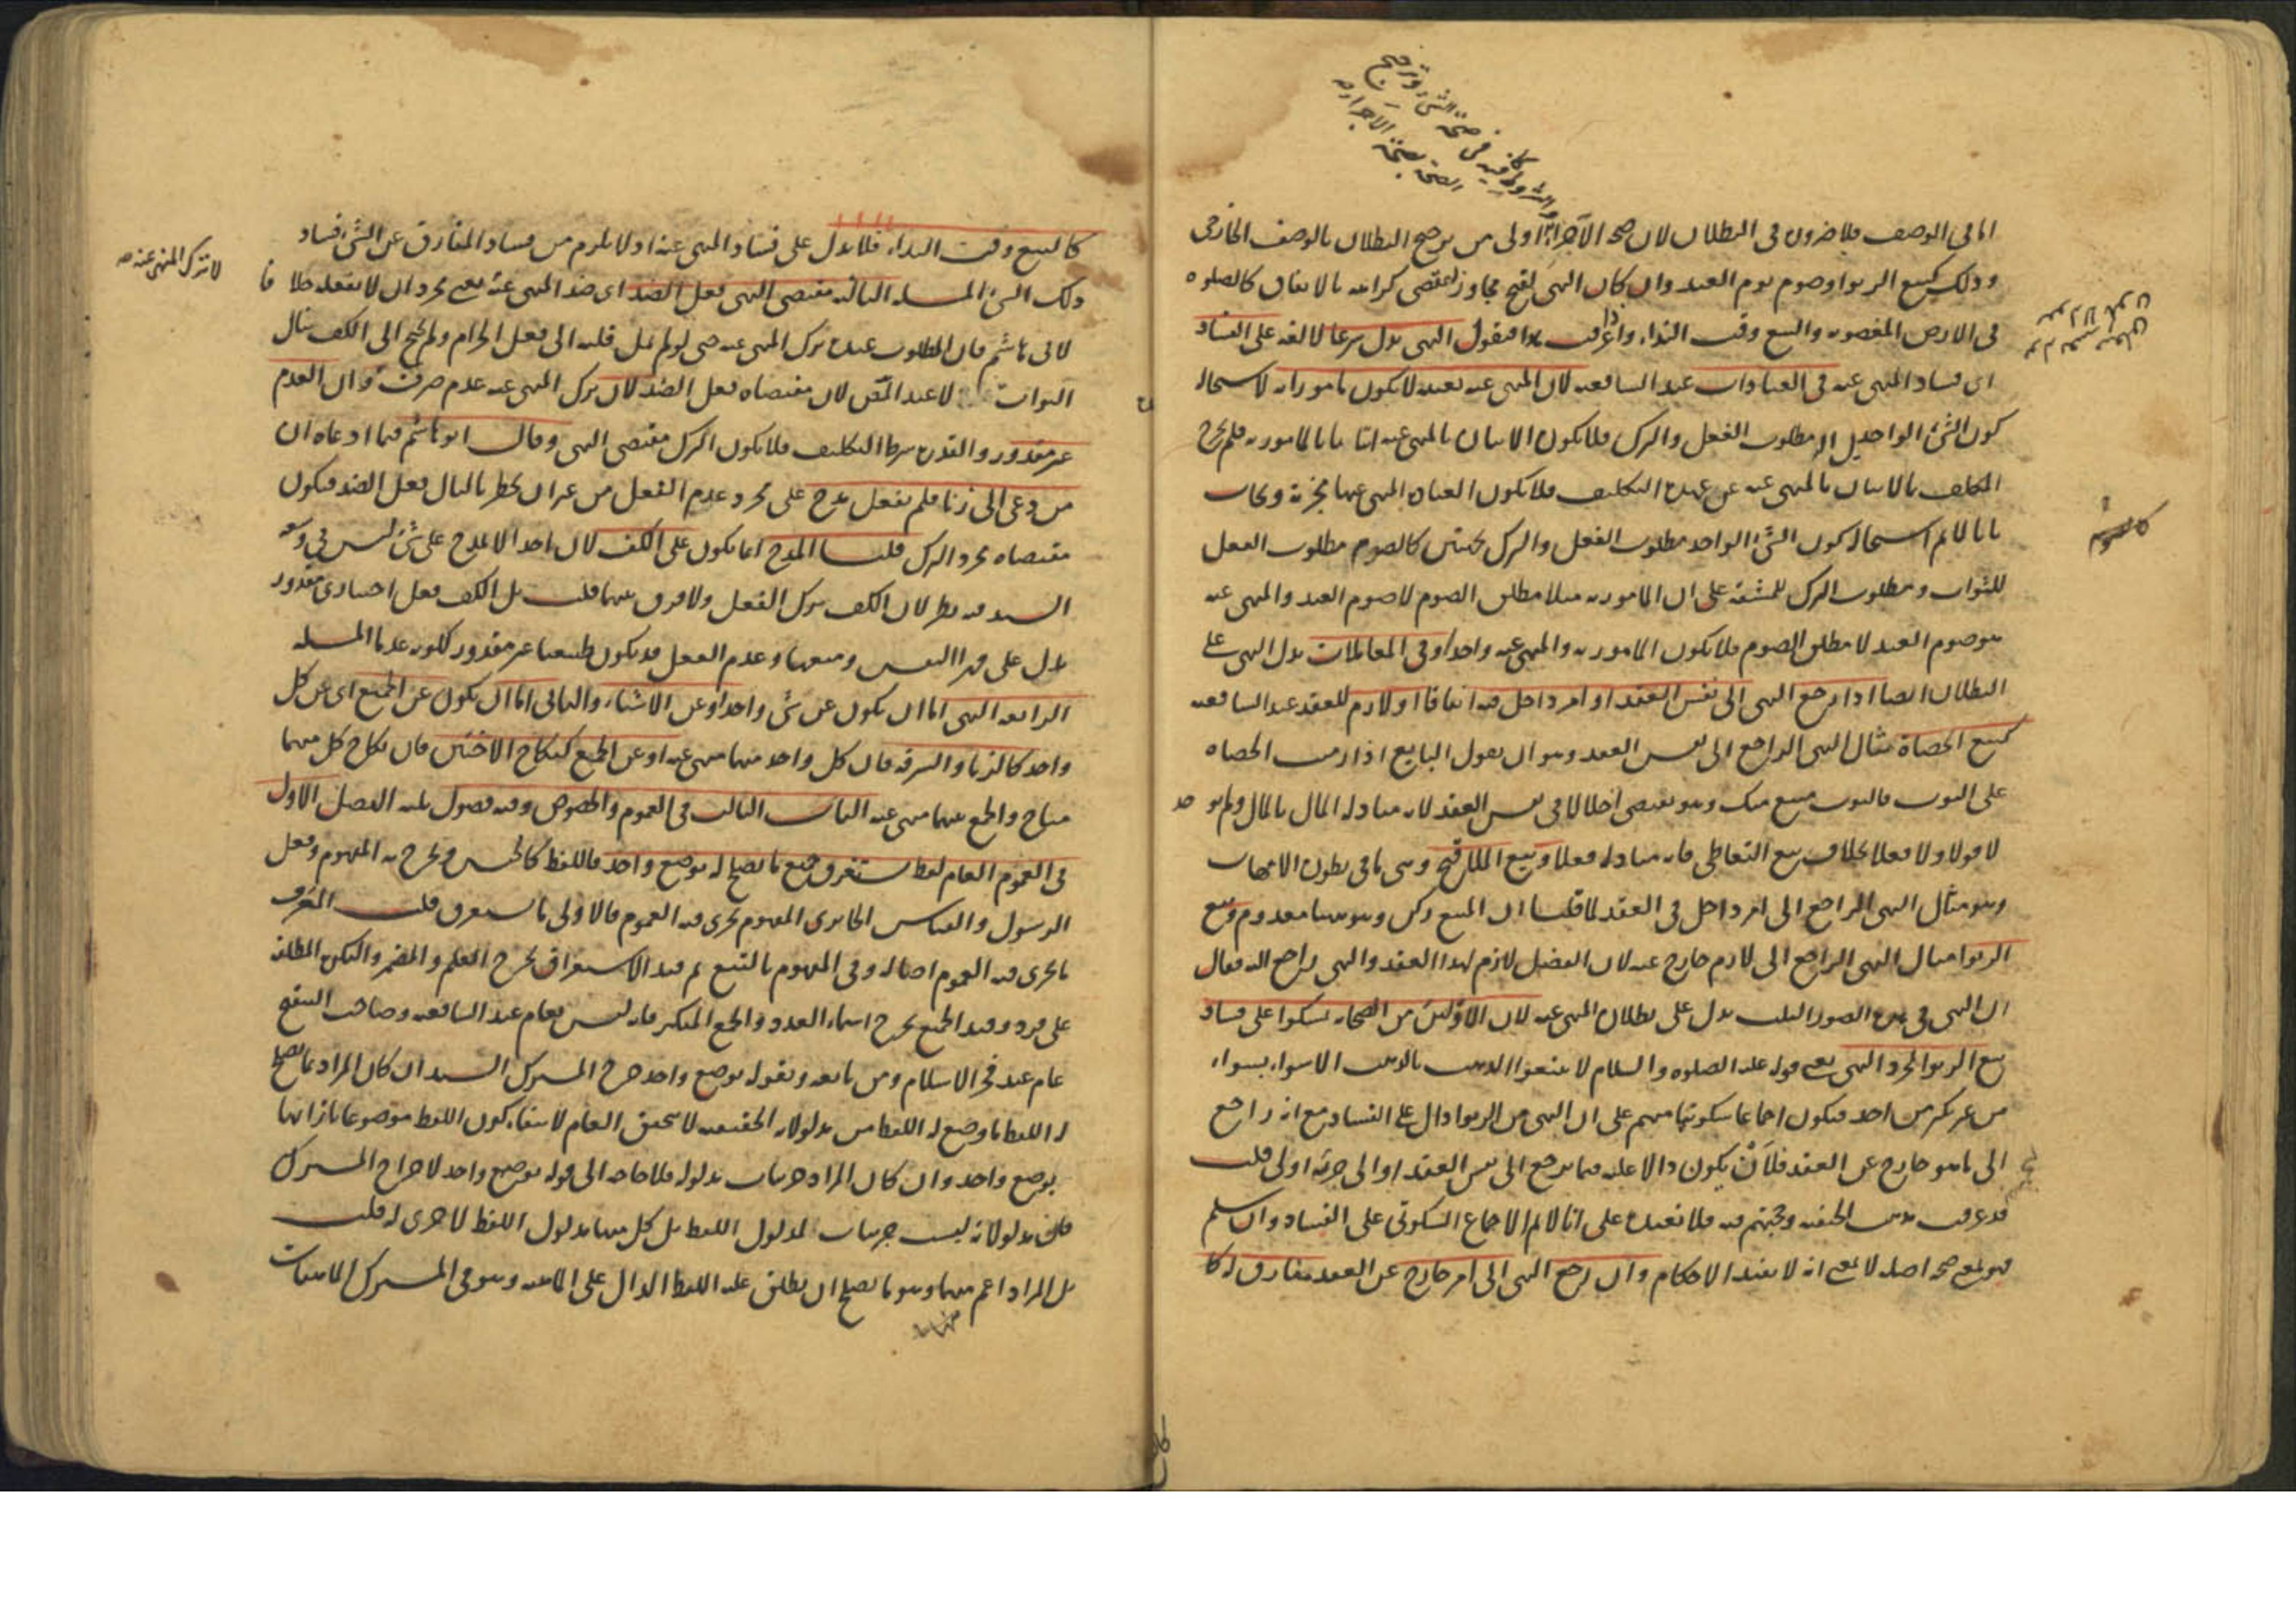 اما فى الوصف فلا ضرورة فى البطلان لان صحة الاجزاء اولى من ترجيح البطلان بالوصف الخارجى
وذلك كبيع الربوا وصوم يوم العيد وان كان النهى لقبح مجاور يقتضى كراهته بالاتفاق كالصلوة
فى الارض المغصوبة والبيع وقت النداء واذا عرفت هذا فنقول النهى يدل شرعا لا لغة على الفساد
اى فساد المنهى عنه فى العبادات عند الشافعية لان المنهى عنه بعينه لا يكون مامورا به لاستحالة
كون الشئ الواحد مطلوب الفعل والترك فلا يكون الاتيان بالمنهى عنه اتيانا بالمامور به فلم يخرج
المكلف بالاتيان بالمنهى عنه عن عهدة التكليف فلا يكون العبادة المنهى عنها مجزية ويجاب
بانا لانم استحالة كون الشئ الواحد مطلوب الفعل والترك بجهتين كالصوم مطلوب الفعل
للثواب ومطلوب الترك للمشقة على ان المامور به مثلا مطلق الصوم لا صوم العيد والمنهى عنه
هو صوم العيد لا مطلق الصوم فلا يكون المامور به والمنهى عنه واحدا وفى المعاملات يدل النهى على
البطلان ايضا اذا رجع النهى الى نفس العقد او امر داخل فيه اتفاقا او لازم للعقد عند الشافعية
كبيع الحصاة مثال النهى الراجع الى نفس العقد وهو ان يقول البايع اذا رميت الحصاة
على الثوب فالثوب مبيع منك وهو يقتضى اخلالا فى نفس العقد لانه مبادلة المال بالمال ولم يو جد
لا قولا ولا فعلا بخلاف بيع التعاطى فانه مبادلة فعلا وبيع الملاقيح وهى ما فى بطون الامهات
وهو مثال النهى الراجع الى امر داخل فى العقد لما قلنا ان المبيع ركن وهو هنا معدوم وبيع
الربوا مثال النهى الراجع الى لازم خارج عنه لان الفضل لازم لهذا العقد والنهى راجع اليه فقال
ان النهى فى هذه الصور الثلث يدل على بطلان المنهى عنه لان الاولين من الصحابة تمسكوا على فساد
بيع الربوا بمجرد النهى يعنى قوله عليه الصلوة والسلام لا تبيعوا الذهب بالذهب الا سواء بسواء
من غير نكير من احد فيكون اجماعا سكوتيا منهم على ان النهى من الربوا دال على الفساد مع انه راجع
الى ما هو خارج عن العقد فلان يكون دالا عليه فيما يرجع الى نفس العقد او الى جزئه اولى قلت
قد عرفت مذهب الحنفية وحجتهم فيه فلا نعيده على انا لانم الاجماع السكوتى على الفساد وان سلم
فهو لمعنى صحة اصله لا بمعنى انه لا يفيد الاحكام وان رجع النهى الى امر خارج عن العقد مفارق له كا
كالبيع وقت النداء فلا يدل على فساد المنهى عنه اذ لا يلزم من فساد المفارق عن الشئ فساد
ذلك الشئ المسئلة الثالثة مقتضى النهى فعل الضد اى ضد المنهى عنه يعنى مجرد ان لا يفعله خلافا
لابى هاشم فان المطلوب عنده ترك المنهى عنه حتى لو لم يمل قلبه الى فعل الحرام ولم يحتج الى الكف ينال
الثواب لا عند المص لان مقتضاه فعل الضد لان ترك المنهى عنه عدم صرف وان العدم
غير مقدور والقدرة شرط التكليف فلا يكون الترك مقتضى النهى وقال ابو هاشم فيما ادعاه ان
من دعى الى زنا فلم يفعل مدح على مجرد عدم الفعل من غير ان يخطر بالبال فعل الضد فيكون
مقتضاه مجرد الترك قلنا المدح انما يكون على الكف لان احدا لا يمدح على شئ ليس فى وسعه
السيد فيه نظر لان الكف ترك الفعل ولا فرق بينهما قلت بل الكف فعل اختيارى مقدور
يدل على قهر النفس ومنعها وعدم الفعل قد يكون طبيعيا غير مقدور لكونه عدما المسئلة
الرابعة النهى اما ان يكون عن شئ واحد او عن الاشياء والثانى اما ان يكون عن الجميع اى عن كل
واحد كالزنا والسرقة فان كل واحد منهما منهى عنه او عن الجمع كنكاح الاختين فان نكاح كل منهما
مباح والجمع بينهما منهى عنه الباب الثالث فى العموم والخصوص وفيه فصول ثلثة الفصل الاول
فى العموم العام لفظ يستغرق جميع ما يصلح له بوضع واحد فاللفظ كالجنس ويخرج به المفهوم وفعل
الرسول والقياس الجابردى المفهوم يجرى فيه العموم فالاولى ما يستغرق قلت المعرف
ما يجرى فيه العموم اصالة وفى المفهوم بالتبع ثم قيد الاستغراق يخرج العلم والمضمر والنكرة المطلقة
على فرد وقيد الجميع يخرج اسماء العدد والجمع المنكر فانه ليس بعام عند الشافعية وصاحب التنقيح
عام عند فخر الاسلام ومن تابعه وبقوله بوضع واحد خرج المشترك السيد ان كان المراد بما يصلح
له اللفظ ما وضع له اللفظ من مدلولاته الحقيقية لا يتحقق العام لانتفاء كون اللفظ موضوعا بازائها
بوضع واحد وان كان المراد جزئيات مدلوله فلا حاجة الى قوله بوضع واحد لاخراج المشترك
فان مدلولاته ليست جزئيات لمدلول اللفظ بل كل منها مدلول اللفظ لا جزئى له قلت
بل المراد اعم منهما وهو ما يصلح ان يطلق عليه اللفظ الدال على الماهية وهو فى المشترك الماهيات
لا ترك المنهى عنه صح
كالصوم